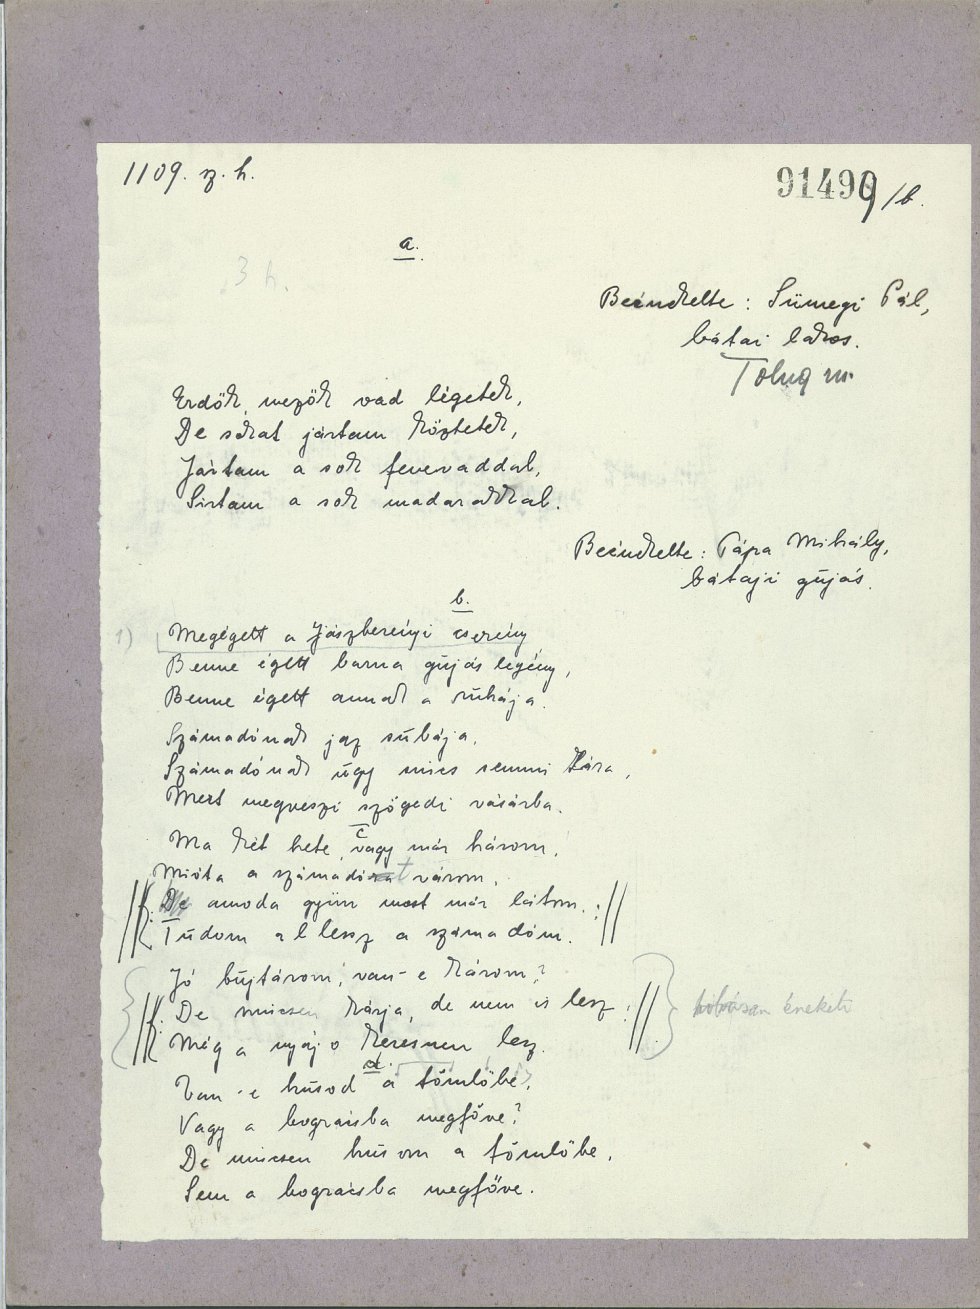 1109. sz. h.
91490/b.
a.
3 h.
Beéneklelte: Sümegi Pál,
bátai lakos.
Tolna m.
Erdők, mezők vad ligetek,
De sokat jártam köztetek,
Jártam a sok fenevaddal,
Sirtam a sok madarakkal.
Beénekelte: Tápra Mihály,
bátaji gujás.
b.
1) Megégett a jászberényi cserény
Benne égett barna gujás legény,
Benne égett annak a ruhája.
Számadónak jaz subája.
Számadónak úgy nincs semmi kára,
Mert megveszi szögedi vásárba.
c
Ma két hete, vagy már három,
Mióta a számadót várom,
//: De amoda gyün most már látom. ://
Tudom el lessz a számadóm.
Jó bujtárom, van-e károm?
//: De nincsen kárja, de nem is lesz ://
Még a nyáj o keresnen lesz.
énekelte
d.
Van-e húsod a tömlőbe,
Vagy a bográcsba megfőve?
De nincsen húsom a tömlőbe,
Sem a bográcsba megfőve.